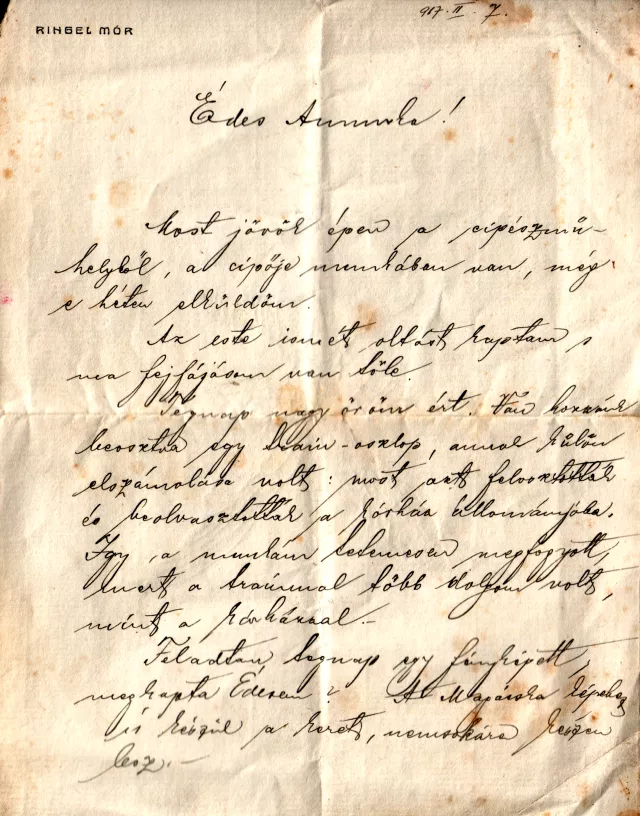 RINGEL MÓR
917. II. 7.
Édes Annuska!
Most jövök épen a cipészmű-
helyből, a cipője munkában van, még
e héten elküldöm.
Az este ismét oltást kaptam s
ma fejfájásom van tőle.
Tegnap nagy öröm ért. Van hozzánk
beosztva egy train-oszlop, annak külön
elszámolása volt: most azt feloszlatták
és beolvasztották a kórház állományába.
Így, a munkám tetemesen megfogyott,
mert a trainnal több dolgom volt,
mint a kórházzal.-
Feladtam tegnap egy fényképet,
megkapta Édesem? A Mapáska képéhez
is készül a keret, nemsokára készen
lesz.-